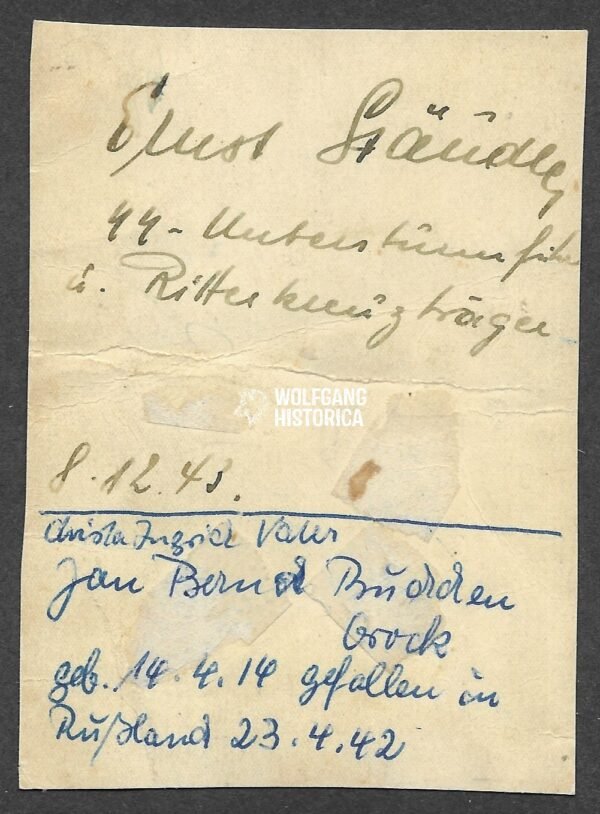 Ernst Stäudle
SS-Untersturmfüh
u. Ritterkreuzträger
WOLFGANG
HISTORICA
8.12.43.
Christa Ingrid Vater
Jan Bernd Budden
Grock
geb. 14.4.14 gefallen in
Rußland 23.4.42